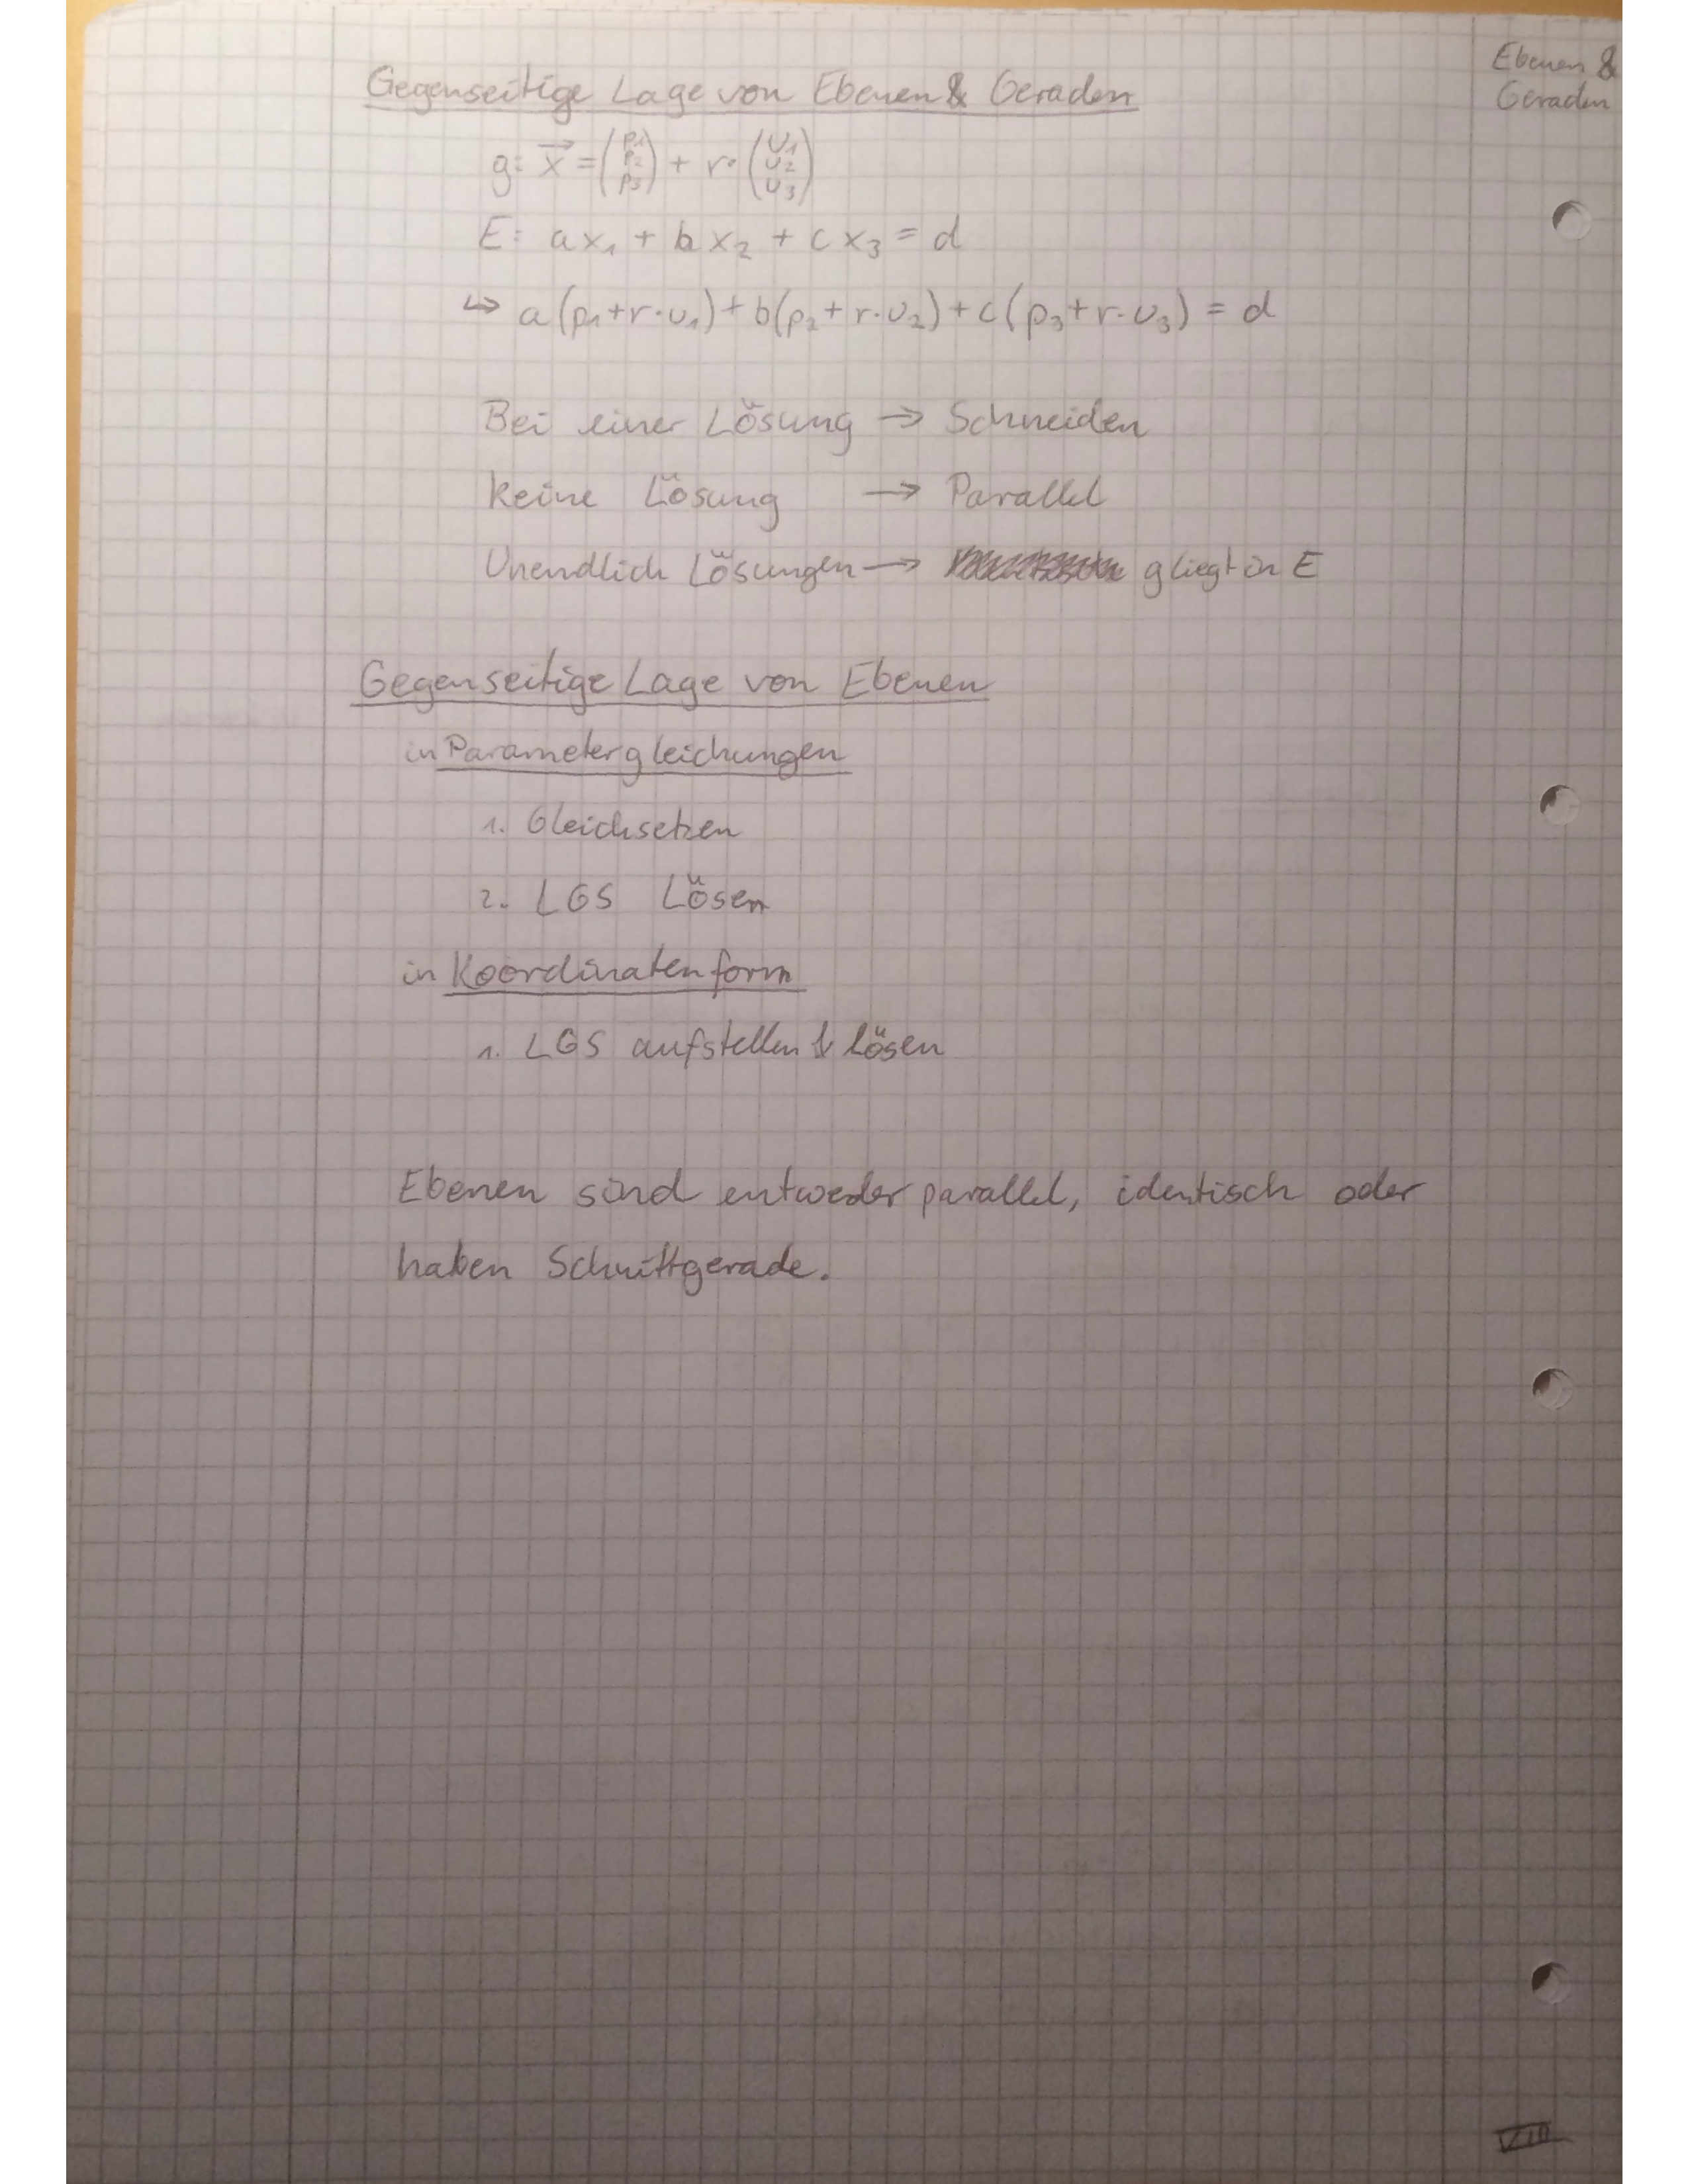 Ebenen &
Geraden
Gegenseitige Lage von Ebenen & Geraden
g: x⃗ = (p1 p2 p3) + r· (u1 u2 u3)
E: ax₁ + bx₂ + cx₃ = d
↪ a(p₁+r·u₁)+b(p₂+r·u₂)+c(p₃+r·u₃) = d
Bei einer Lösung → Schneiden
keine Lösung → Parallel
Unendlich Lösungen → g liegt in E
Gegenseitige Lage von Ebenen
in Parametergleichungen
1. Gleichsetzen
2. LGS Lösen
in Koordinatenform
1. LGS aufstellen & lösen
Ebenen sind entweder parallel, identisch oder
haben Schnittgerade.
VIII